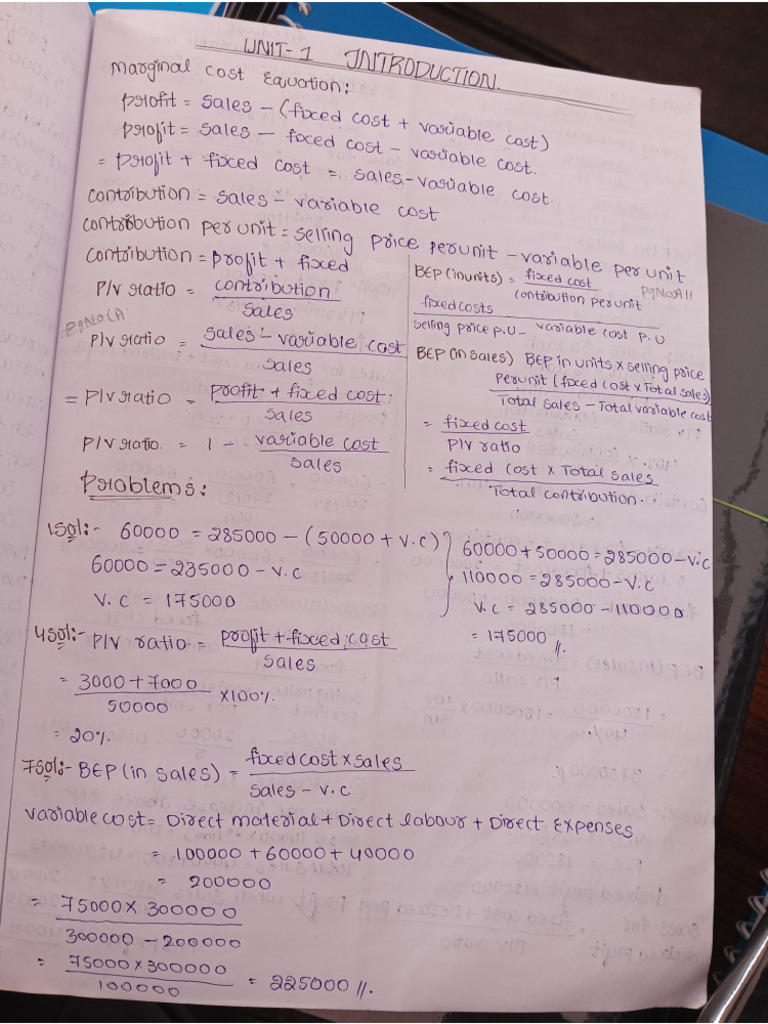 UNIT-1 INTRODUCTION.
Marginal cost Equation:
profit = sales - (fixed cost + variable cost)
profit = sales - fixed cost - variable cost.
= profit + fixed cost = sales - variable cost.
contribution = sales - variable cost
contribution per unit = selling price per unit - variable per unit.
contribution = profit + fixed
P/v ratio = contribution / sales
pgNo(A
P/v ratio = sales - variable cost / sales
= P/v ratio = profit + fixed cost / sales
P/v ratio = 1 - variable cost / sales
BEP (in units) = fixed cost / contribution per unit
pgNo:A11
fixed costs / selling price p.u - variable cost p.u
BEP (in sales) BEP in units x selling price
per unit (fixed cost x Total sales) / Total sales - Total variable cost
= fixed cost / P/V ratio
= fixed cost x Total sales / Total contribution.
Problems:
1sol:- 60000 = 285000 - (50000 + v.c)
60000 = 235000 - v.c
v.c = 175000
60000 + 50000 = 285000 - v.c
110000 = 285000 - v.c
v.c = 285000 - 110000
= 175000 //.
4sol:- P/v ratio = profit + fixed cost / sales
= 3000 + 7000 / 50000 x 100%
= 20%.
7sol:- BEP (in sales) = fixed cost x sales / sales - v.c
variable cost = Direct material + Direct labour + Direct Expenses
= 100000 + 60000 + 40000
= 200000
= 75000 x 300000 / 300000 - 200000
= 75000 x 300000 / 100000 = 225000 //.